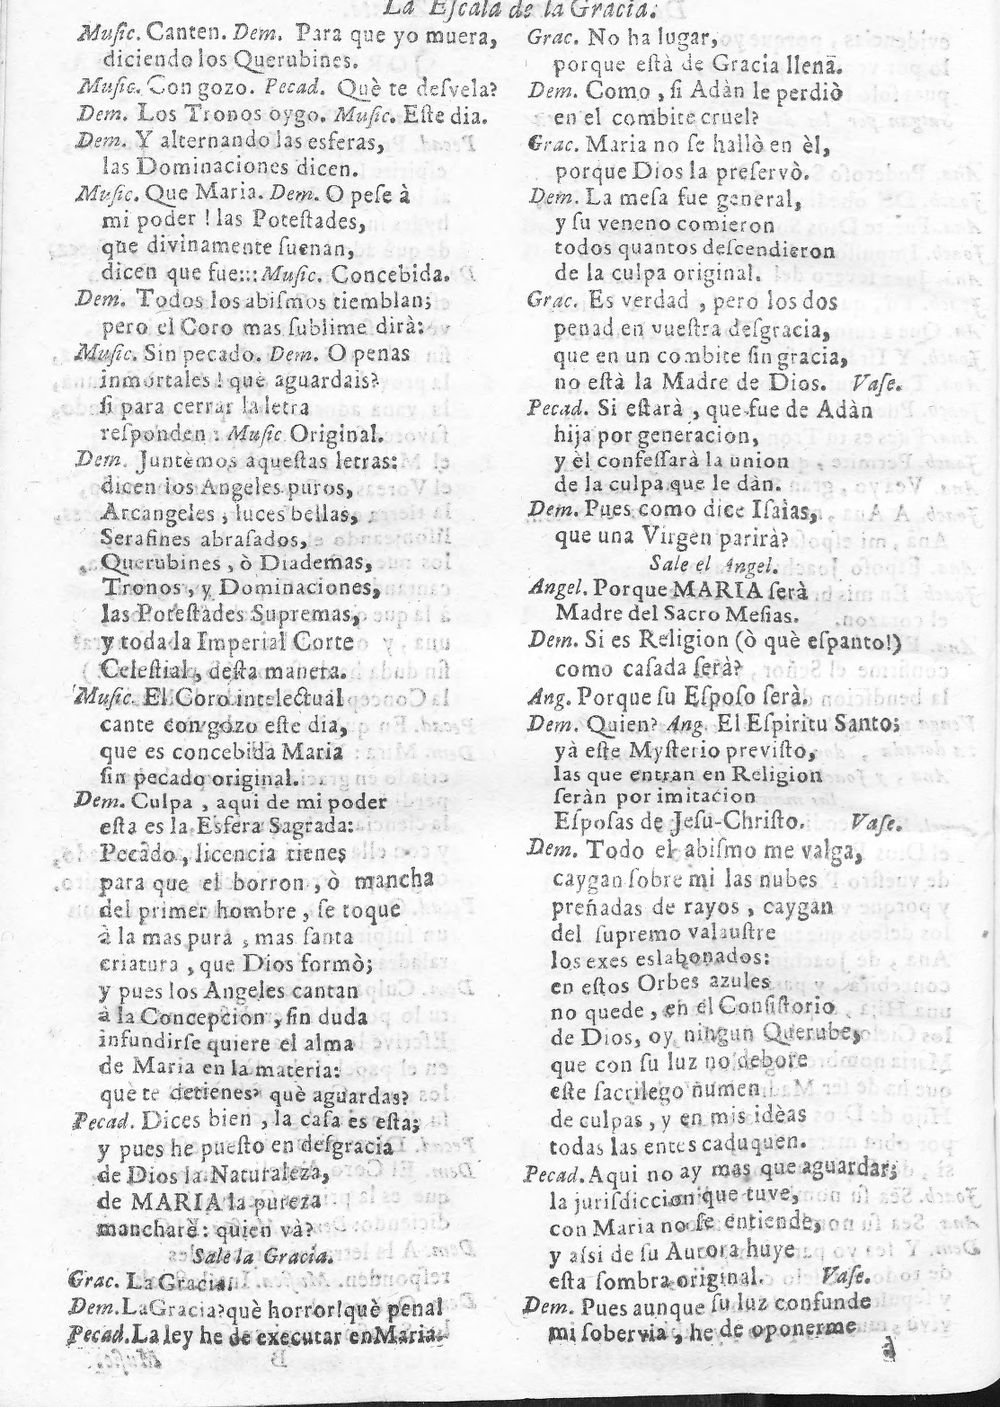 La Eſcala de la Gracia.
Muſic. Canten. Dem. Para que yo muera,
diciendo los Querubines.
Muſic. Con gozo. Pecad. Què te deſvela?
Dem. Los Tronos oygo. Muſic. Eſte dia.
Dem. Y alternando las esferas,
las Dominaciones dicen.
Muſic. Que Maria. Dem. O peſe à
mi poder! las Poteſtades,
que divinamente ſuenan,
dicen que fue::: Muſic. Concebida.
Dem. Todos los abiſmos tiemblan;
pero el Coro mas ſublime dirà:
Muſic. Sin pecado. Dem. O penas
inmortales! què aguardais?
ſi para cerrar la letra
reſponden: Muſic Original.
Dem. Juntèmos aqueſtas letras:
dicen los Angeles puros,
Arcangeles, luces bellas,
Serafines abraſados,
Querubines, ò Diademas,
Tronos, y Dominaciones,
las Poteſtades Supremas,
y toda la Imperial Corte
Celeſtial, deſta manera.
Muſic. El Coro intelectual
cante con gozo eſte dia,
que es concebida Maria
ſin pecado original.
Dem. Culpa, aqui de mi poder
eſta es la Esfera Sagrada:
Pecado, licencia tienes
para que el borron, ò mancha
del primer hombre, ſe toque
à la mas pura, mas ſanta
criatura, que Dios formò;
y pues los Angeles cantan
à la Concepcion, ſin duda
infundirſe quiere el alma
de Maria en la materia:
què te detienes? què aguardas?
Pecad. Dices bien, la caſa es eſta;
y pues he pueſto en deſgracia
de Dios la Naturaleza,
de MARIA la pureza
mancharè: quien và?
Sale la Gracia.
Grac. La Gracia.
Dem. La Gracia? què horror! què pena!
Pecad. La ley he de executar en Maria.
Grac. No ha lugar,
porque eſtà de Gracia llena.
Dem. Como, ſi Adàn le perdiò
en el combite cruel?
Grac. Maria no ſe hallò en èl,
porque Dios la preſervò.
Dem. La meſa fue general,
y ſu veneno comieron
todos quantos deſcendieron
de la culpa original.
Grac. Es verdad, pero los dos
penad en vueſtra deſgracia,
que en un combite ſin gracia,
no eſtà la Madre de Dios. Vaſe.
Pecad. Si eſtarà, que fue de Adàn
hija por generacion,
y èl confeſſarà la union
de la culpa que le dàn.
Dem. Pues como dice Iſaias,
que una Virgen parirà?
Sale el Angel.
Angel. Porque MARIA ſerà
Madre del Sacro Meſias.
Dem. Si es Religion (ò què eſpanto!)
como caſada ſerà?
Ang. Porque ſu Eſpoſo ſerà.
Dem. Quien? Ang. El Eſpiritu Santo;
yà eſte Myſterio previſto,
las que entran en Religion
ſeràn por imitacion
Eſpoſas de Jeſu-Chriſto. Vaſe.
Dem. Todo el abiſmo me valga,
caygan ſobre mi las nubes
preñadas de rayos, caygan
del ſupremo valauſtre
los exes eslabonados:
en eſtos Orbes azules
no quede, en el Conſiſtorio
de Dios, oy ningun Querube,
que con ſu luz no debore
eſte ſacrilego numen
de culpas, y en mis idèas
todas las entes caduquen.
Pecad. Aqui no ay mas que aguardar;
la juriſdiccion que tuve,
con Maria no ſe entiende,
y aſsi de ſu Aurora huye
eſta ſombra original. Vaſe.
Dem. Pues aunque ſu luz confunde
mi ſobervia, he de oponerme